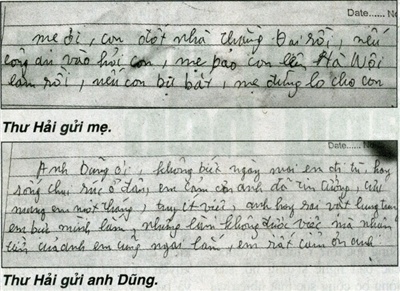 Date...... No
mẹ ơi, con đốt nhà thằng Đại rồi, nếu
công an vào hỏi con, mẹ bảo con lên Hà Nội
làm rồi, nếu con bị bắt, mẹ đừng lo cho con
Thư Hải gửi mẹ.
Date...... No
Anh Dũng ơi, không biết ngày mai em đi tù, hay
sống chui rúc ở đâu, em cảm ơn anh đã tin tưởng, cưu
mang em một tháng, tuy ít việc, anh hay sai vặt lung tung
em bực mình lắm, nhưng làm không được việc mà nhân
của anh em cũng ngại lắm, em rất cảm ơn anh
Thư Hải gửi anh Dũng.